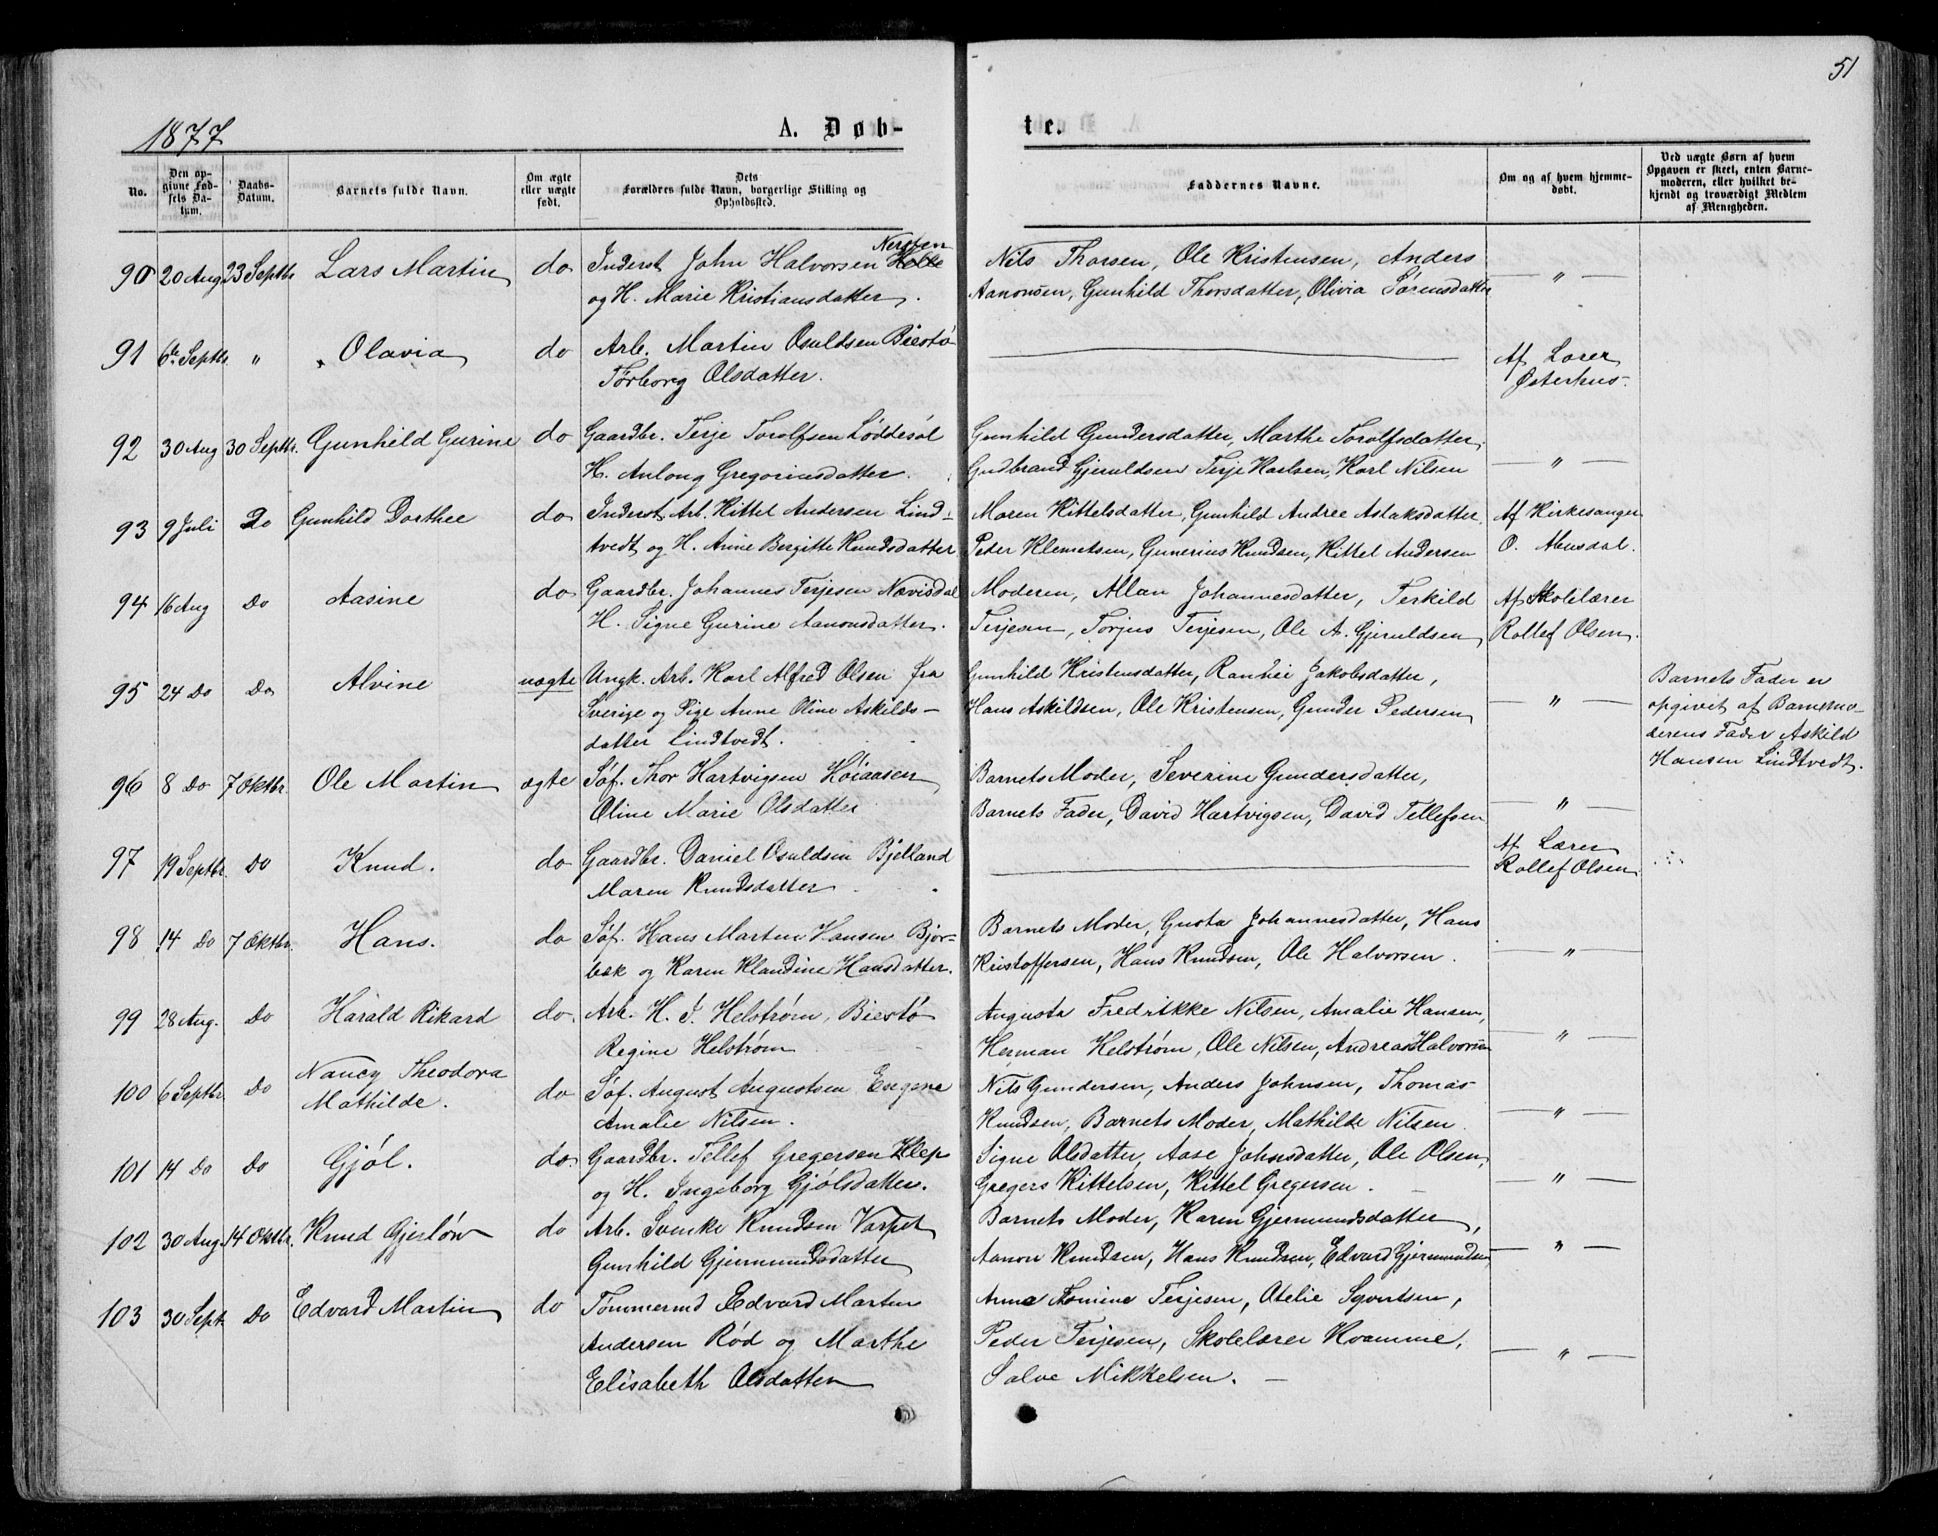 51
1877
A. Døb-
te.
No.
Den opgivne Fødsels Datum.
Daabs-Datum.
Barnets fulde Navn.
Om ægte eller uægte født.
Dets Forældres fulde Navn, borgerlige Stilling og Opholdssted.
Faddernes Navne.
Om og af hvem hjemmedøbt.
Ved uægte Børn af hvem Opgaven er skeet, enten Barnemoderen, eller hvilket bekjendt og troværdigt Medlem af Menigheden.
90 20 Aug 23 Septbr Lars Martin do Inderst John Halvorsen Nersten Nils Thorsen, Ole Kristensen, Anders — " —
og H. Marie Kristiansdatter. Aanonsen, Gunhild Thorsdatter, Olivia Sørensdatter
91 6te Septbr. " Olavia do Arb. Martin Osuldsen Biestø Af Lærer
Torborg Olsdatter. Østerhus.
92 30 Aug 30 Septbr. Gunhild Gurine do Gaardbr. Terje Torolfsen Løddesøl Gunhild Gundersdatter, Marthe Torolfsdatter, — " —
H. Anlong Gregoriusdatter. Gudbrand Gjeruldsen Terje Karlsen, Karl Nilsen
93 9 Juli Do Gunhild Dorthee do Inderst Arb. Kittel Andersen Lind- Maren Kittelsdatter, Gunhild Andree Aslaksdatter, Af Kirkesanger
tvedt og H. Anne Bergitte Knudsdatter Peder Klemetsen, Gunerius Knudsen, Kittel Andersen O. Mensdal.
94 16 Aug Do Aasine do Gaardbr. Johannes Terjesen Nævisdal Moderen, Allan Johannesdatter, Terkild Af Skolelærer
H. Signe Gurine Aanonsdatter. Terjesen, Torjus Terjesen, Ole A. Gjeruldsen Rollef Olsen.
95 24 Do Do Alvine uægte Ungk. Arb. Karl Alfred Olsen fra Gunhild Kristensdatter, Ranhei Jakobsdatter, — " — Barnets Fader er
Sverige og Pige Anne Oline Askilds- Hans Askildsen, Ole Kristensen, Gunder Pedersen opgivet af Barnemo-
datter Lindtvedt. derens Fader Askild
Hansen Lindtvedt.
96 8 Do 7 Oktbr. Ole Martin ægte Søf. Thor Hartvigsen Høiaasen Barnets Moder, Severine Gundersdatter, — " —
Oline Marie Olsdatter Barnets Fader, David Hartvigsen, David Tellefsen
97 19 Septbr. Do Knud. do Gaardbr. Daniel Osuldsen Bjelland Af Lærer
Maren Knudsdatter Rollef Olsen
98 14 Do 7 Oktbr. Hans. do Søf. Hans Martin Hansen Bjor- Barnets Moder, Gusta Johannesdatter, Hans — " —
bæk og Karen Klandine Hansdatter. Kristoffersen, Hans Knudsen, Ole Halvorsen.
99 28 Aug. Do Harald Rikard do. Arb. H. J. Helstrøm, Biestø Augusta Fredrikke Nilsen, Amalie Hansen, — " —
Regine Helstrøm Herman Helstrøm, Ole Nilsen, Andreas Halvorsen
100 6 Septbr. Do Nancy Theodora do Søf. August Augustsen Engene Nils Gundersen, Anders Johnsen, Thomas — " —
Mathilde. Amalie Nilsen. Knudsen, Barnets Moder, Mathilde Nilsen.
101 14 Do Do Gjøl. do. Gaardbr. Tellef Gregersen Klep Signe Olsdatter, Aase Johnsdatter, Ole Olsen, — " —
og H. Ingeborg Gjølsdatter. Gregers Kittelsen, Kittel Gregersen.
102 30 Aug. 14 Oktbr. Knud Gjerløw do Arb. Svenke Knudsen Varpet Barnets Moder, Karen Gjermundsdatter, — " —
Gunhild Gjermundsdatter Aanon Knudsen, Hans Knudsen, Edvard Gjermundsen
103 30 Sept. Do Edvard Martin do Tømmermd Edvard Marten Anna Tomine Terjesen, Otelie Syvertsen, — " —
Andersen Rød og Marthe Peder Terjesen, Skolelærer Kvamme,
Elisabeth Olsdatter Salve Mikkelsen.